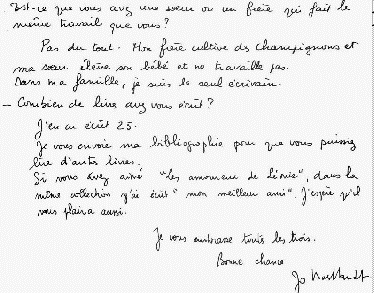 Est-ce que vous avez une sœur ou un frère qui fait le
même travail que vous ?
Pas du tout. Mon frère cultive des champignons et
ma sœur élève son bébé et ne travaille pas.
Dans ma famille, je suis le seul écrivain.
— Combien de livre avez vous écrit ?
J'en ai écrit 25.
Je vous envoie ma bibliographie pour que vous puissiez
lire d'autres livres.
Si vous avez aimé "Les amoureux de Léonie", dans la
même collection j'ai écrit "mon meilleur ami". J'espère qu'il
vous plaira aussi.
Je vous embrasse toutes les trois.
Bonne chance
Jo Hoestlandt